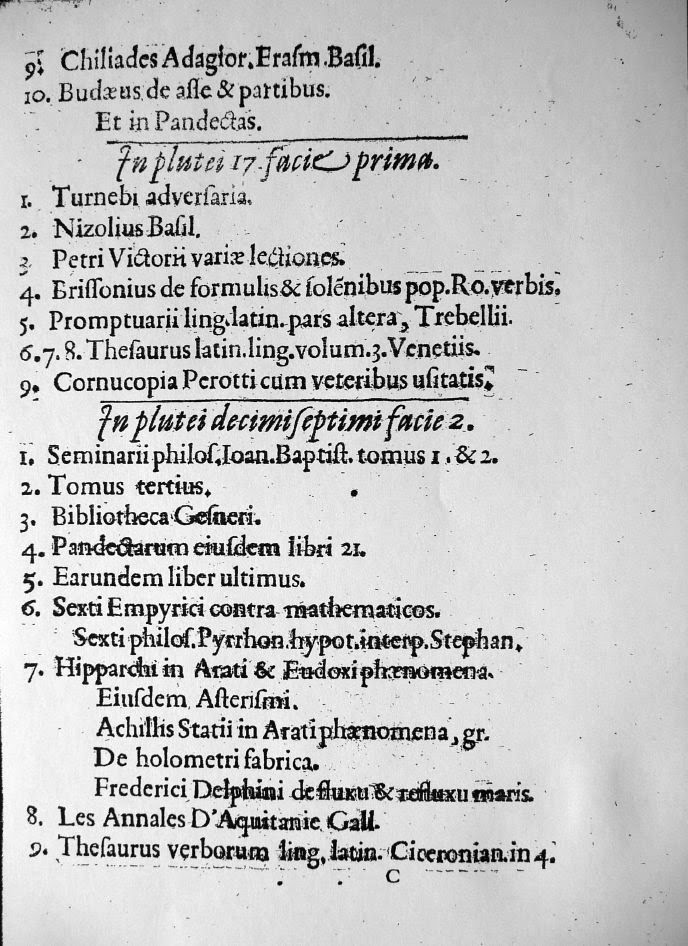 9. Chiliades Adagior. Eraſm. Baſil.
10. Budæus de aſſe & partibus.
Et in Pandectas.
In plutei 17. facie prima.
1. Turnebi adverſaria.
2. Nizolius Baſil.
3 Petri Victorii variæ lectiones.
4. Briſſonius de formulis & ſolẽnibus pop. Ro. verbis.
5. Promptuarii ling. latin. pars altera, Trebellii.
6.7.8. Theſaurus latin. ling. volum. 3. Venetiis.
9. Cornucopia Perotti cum veteribus uſitatis.
In plutei decimi ſeptimi facie 2.
1. Seminarii philoſ. Ioan. Baptiſt. tomus 1. & 2.
2. Tomus tertius.
3. Bibliotheca Geſneri.
4. Pandectarum eiuſdem libri 21.
5. Earundem liber ultimus.
6. Sexti Empyrici contra mathematicos.
Sexti philoſ. Pyrrhon. hypot. interp. Stephan.
7. Hipparchi in Arati & Eudoxi phænomena.
Eiuſdem Aſteriſmi.
Achillis Statii in Arati phænomena, gr.
De holometri fabrica.
Frederici Delphini de fluxu & refluxu maris.
8. Les Annales D'Aquitanie Gall.
9. Theſaurus verborum ling. latin. Ciceronian. in 4.
C